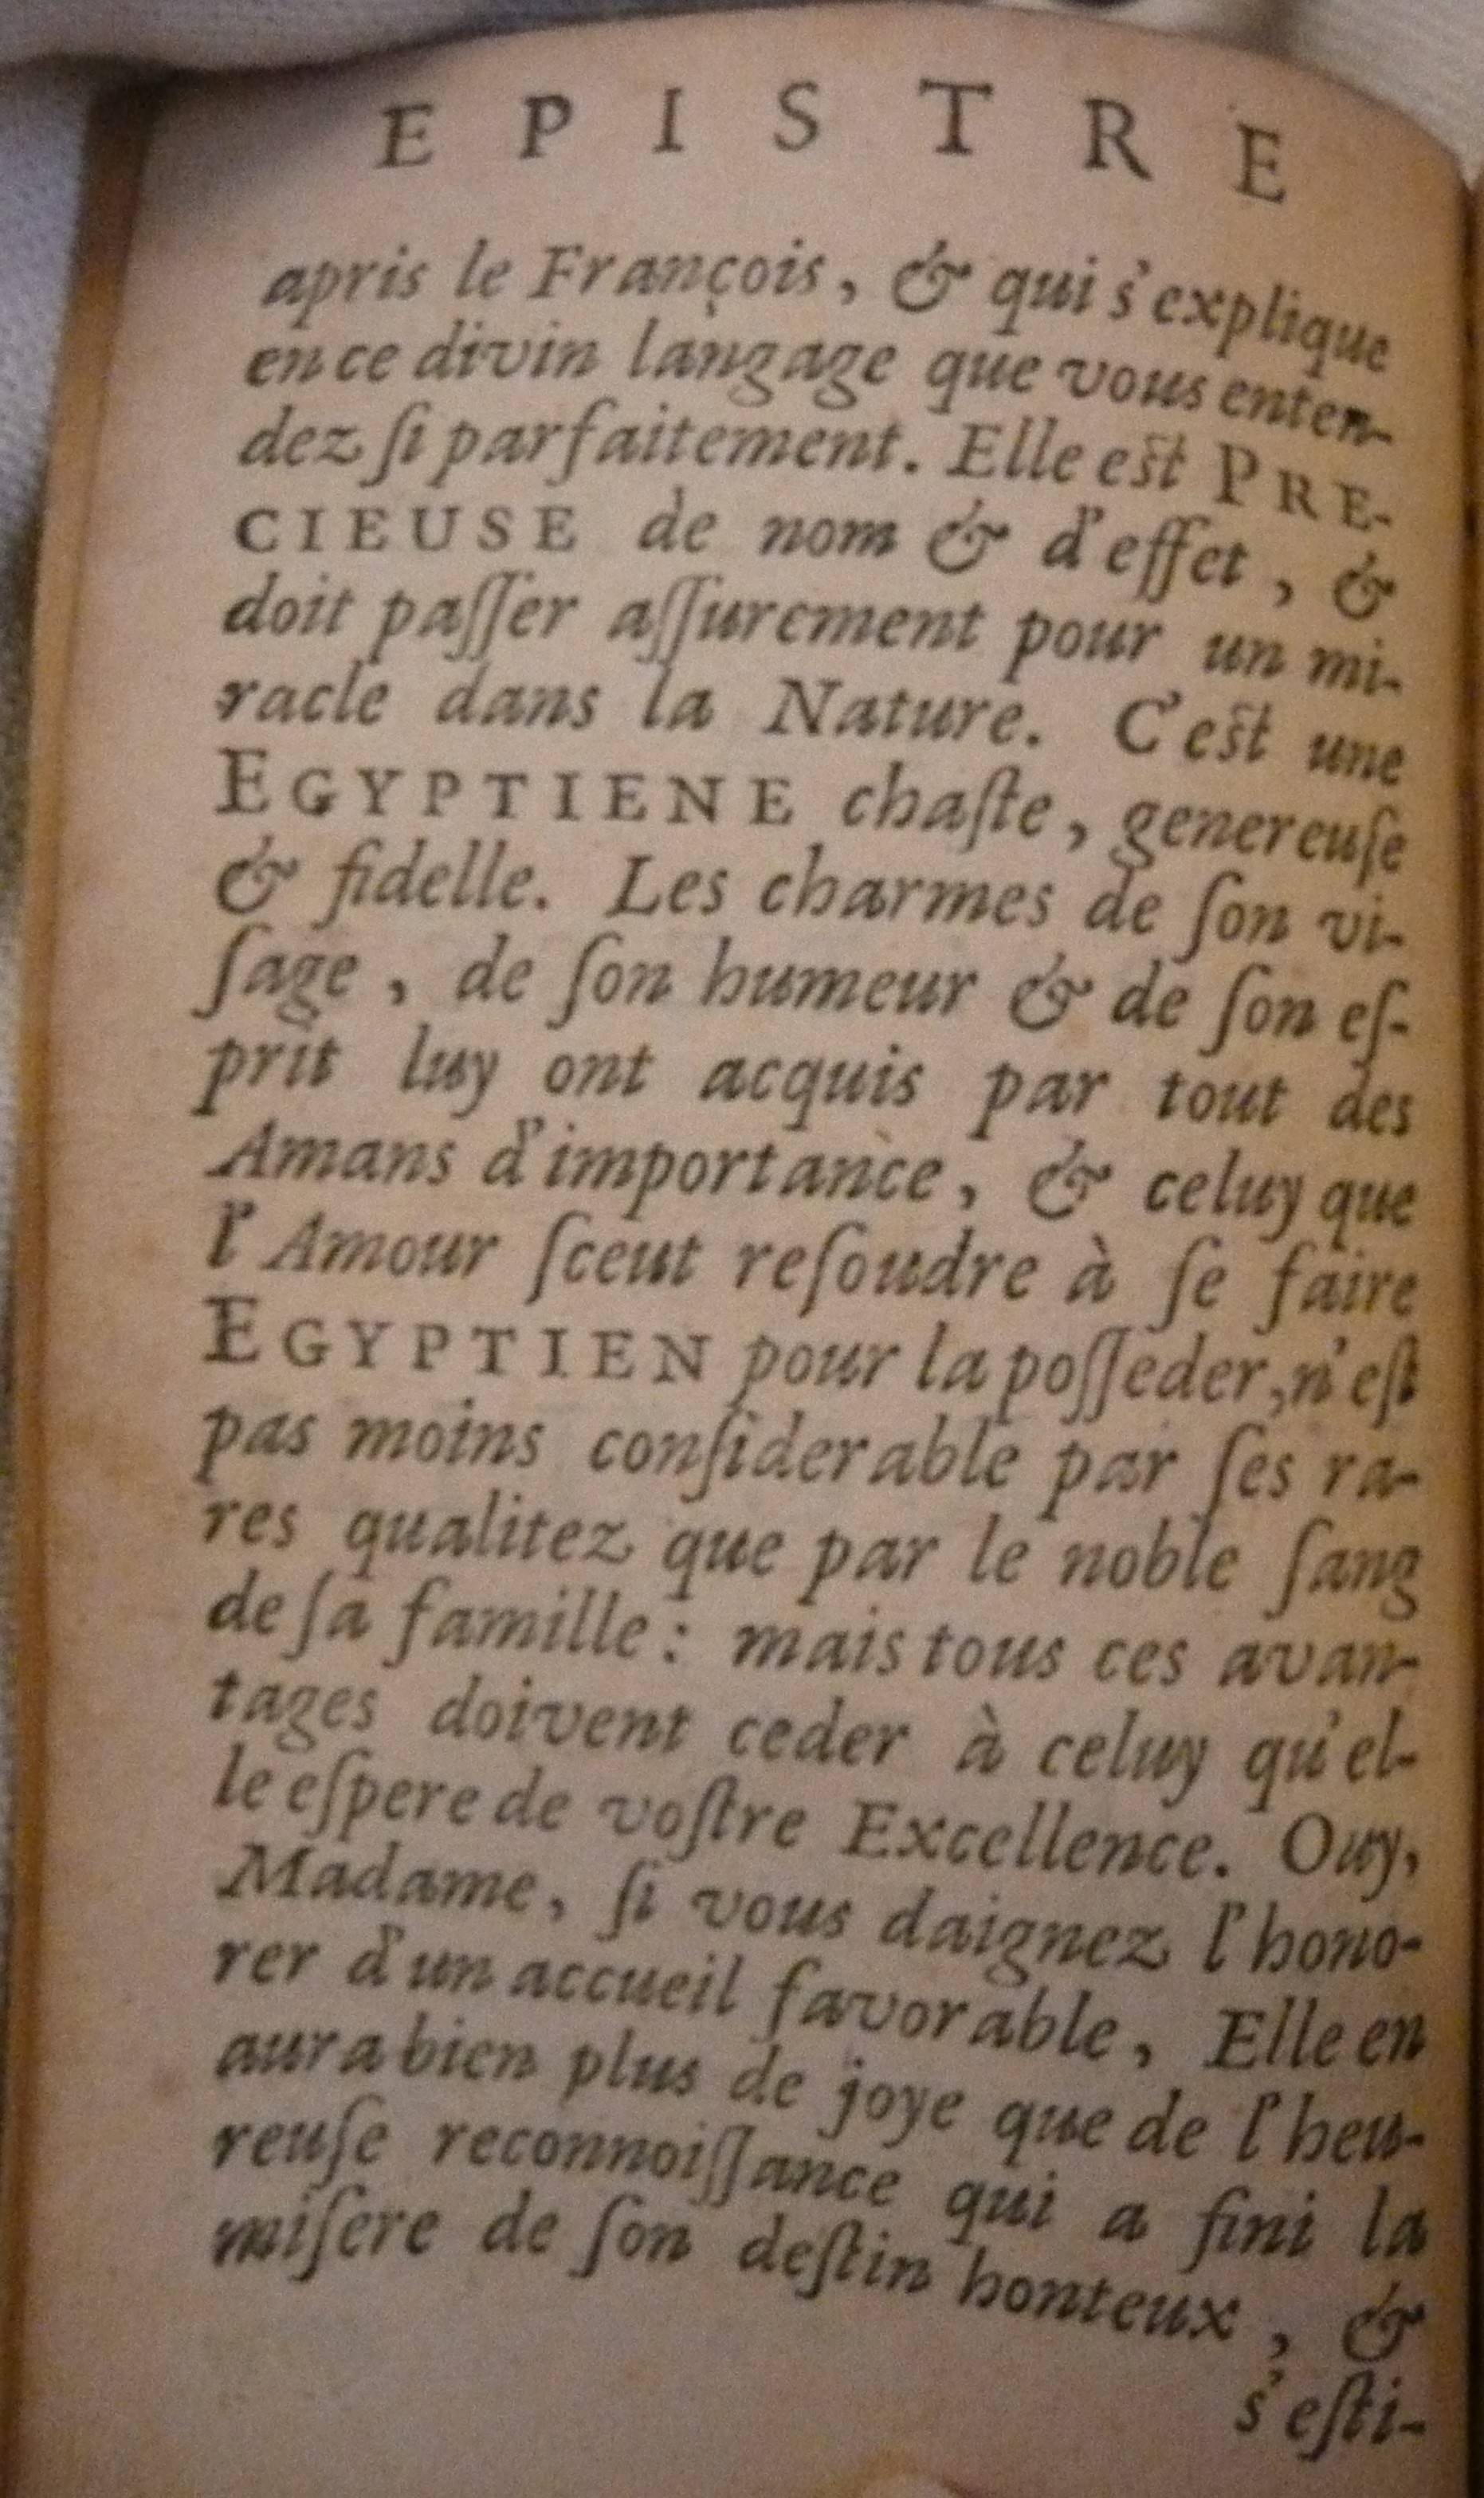 EPISTRE
apris le François, & qui s'explique
en ce divin langage que vous enten-
dez ſi parfaitement. Elle eſt PRE-
CIEUSE de nom & d'effet, &
doit paſſer aſſurement pour un mi-
racle dans la Nature. C'eſt une
EGYPTIENE chaſte, genereuſe
& fidelle. Les charmes de ſon vi-
ſage, de ſon humeur & de ſon eſ-
prit luy ont acquis par tout des
Amans d'importance, & celuy que
l'Amour ſceut reſoudre à ſe faire
EGYPTIEN pour la poſſeder, n'eſt
pas moins conſiderable par ſes ra-
res qualitez que par le noble ſang
de ſa famille: mais tous ces avan-
tages doivent ceder à celuy qu'el-
le eſpere de voſtre Excellence. Ouy,
Madame, ſi vous daignez l'hono-
rer d'un accueil favorable, Elle en
aura bien plus de joye que de l'heu-
reuſe reconnoiſſance qui a fini la
miſere de ſon deſtin honteux, &
s'eſti-